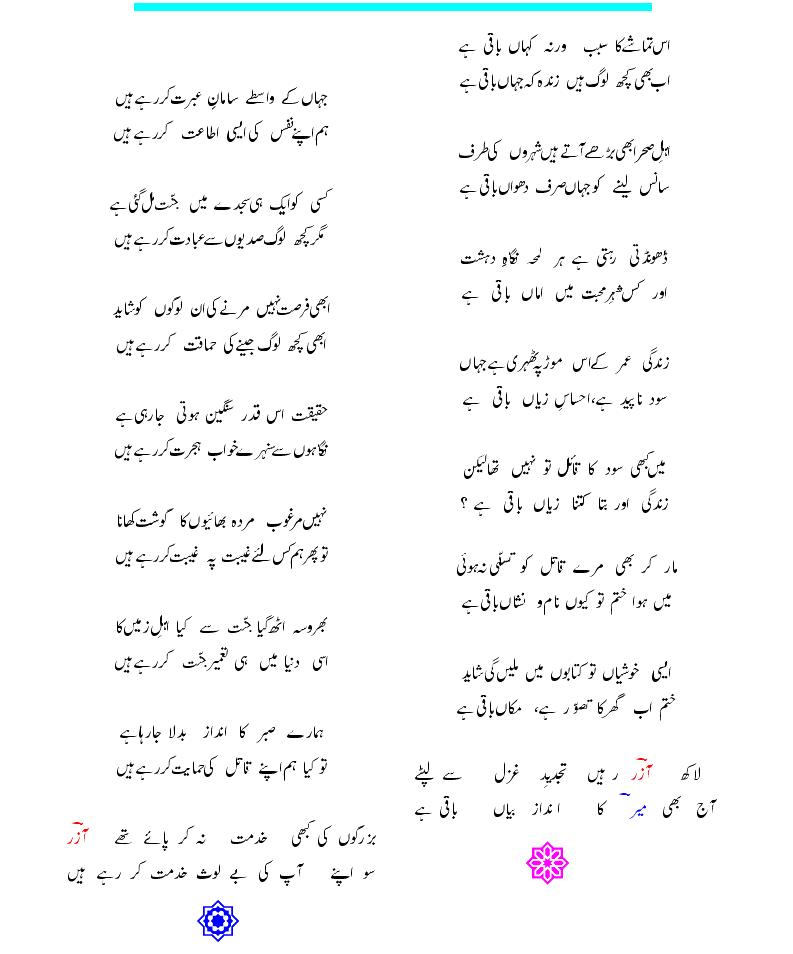 اس تماشے کا سبب ورنہ کہاں باقی ہے
اب بھی کچھ لوگ ہیں زندہ کہ جہاں باقی ہے
اہلِ صحرا بھی بڑھے آتے ہیں شہروں کی طرف
سانس لینے کو جہاں صرف دھواں باقی ہے
ڈھونڈتی رہتی ہے ہر لمحہ نگاہِ دہشت
اور کس شہرِ محبت میں اماں باقی ہے
زندگی عمر کے اس موڑ پہ ٹھہری ہے جہاں
سود ناپید ہے، احساسِ زیاں باقی ہے
میں کبھی سود کا قائل تو نہیں تھا لیکن
زندگی اور بتا کتنا زیاں باقی ہے ؟
مار کر بھی مرے قاتل کو تسلّی نہ ہوئی
میں ہوا ختم تو کیوں نام و نشاں باقی ہے
ایسی خوشیاں تو کتابوں میں ملیں گی شاید
ختم اب گھر کا تصوّر ہے، مکاں باقی ہے
لاکھ آزرؔ رہیں تجدیدِ غزل سے لپٹے
آج بھی میرؔ کا اندازِ بیاں باقی ہے
جہاں کے واسطے سامانِ عبرت کر رہے ہیں
ہم اپنے نفس کی ایسی اطاعت کر رہے ہیں
کسی کو ایک ہی سجدے میں جنّت مل گئی ہے
مگر کچھ لوگ صدیوں سے عبادت کر رہے ہیں
ابھی فرصت نہیں مرنے کی ان لوگوں کو شاید
ابھی کچھ لوگ جینے کی حماقت کر رہے ہیں
حقیقت اس قدر سنگین ہوتی جا رہی ہے
نگاہوں سے سنہرے خواب ہجرت کر رہے ہیں
نہیں مرغوب مردہ بھائیوں کا گوشت کھانا
تو پھر ہم کس لئے غیبت پہ غیبت کر رہے ہیں
بھروسہ اٹھ گیا جنّت سے کیا اہلِ زمیں کا
اسی دنیا میں ہی تعمیرِ جنّت کر رہے ہیں
ہمارے صبر کا انداز بدلا جا رہا ہے
تو کیا ہم اپنے قاتل کی حمایت کر رہے ہیں
بزرگوں کی کبھی خدمت نہ کر پائے تھے آزرؔ
سو اپنے آپ کی بے لوث خدمت کر رہے ہیں